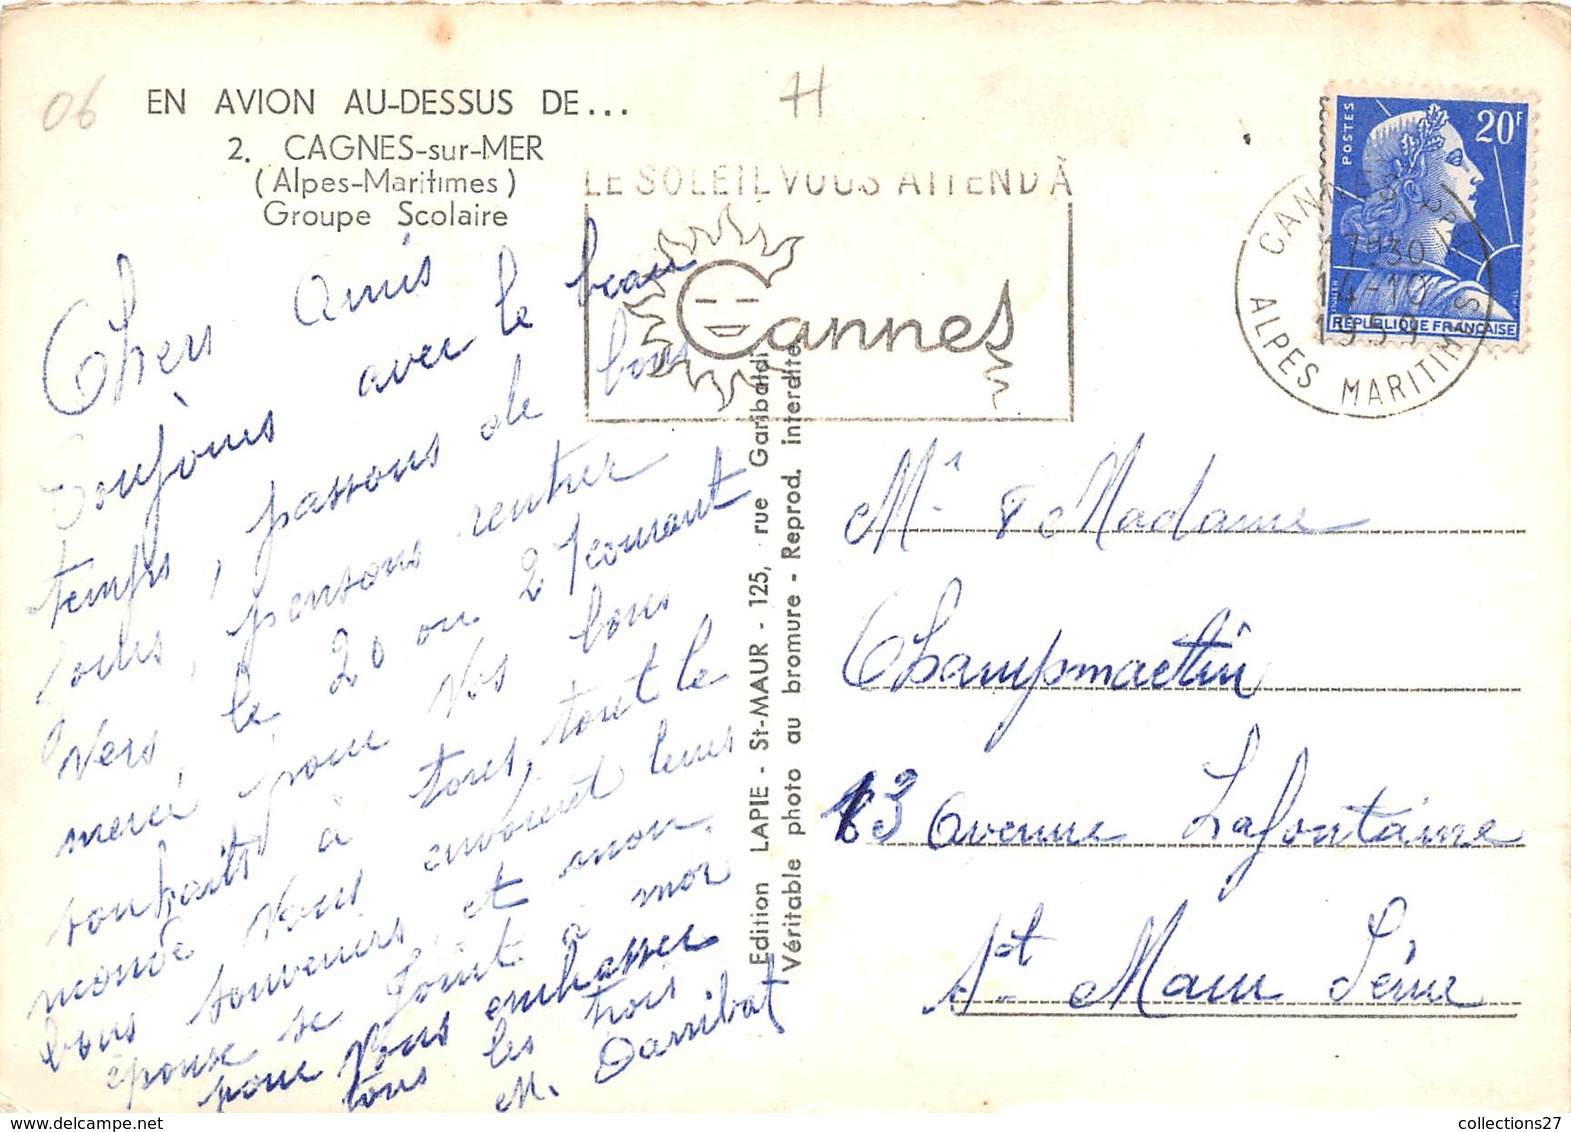 06
H
EN AVION AU-DESSUS DE...
2. CAGNES-sur-MER
(Alpes-Maritimes)
Groupe Scolaire
LE SOLEIL VOUS ATTEND À
Cannes
POSTES
20F
REPUBLIQUE FRANÇAISE
CANNES
17H30
14-10
1959
ALPES MARITIMES
Chers Amis
Toujours avec le beau
temps, passons de bons
jours, pensons rentrer
vers le 20 ou 21 courant
merci pour vos bons
souhaits à tous, tout le
monde vous envoient leurs
bons souvenirs, et mon
épouse se joint à moi
pour vous embrasser
tous les trois
M. Darribat
Edition LAPIE - St-MAUR - 125, rue Garibaldi
Véritable photo au bromure - Reprod. interdite
Mr & Madame
Champmartin
13 Avenue Lafontaine
St Maur Seine
collections27